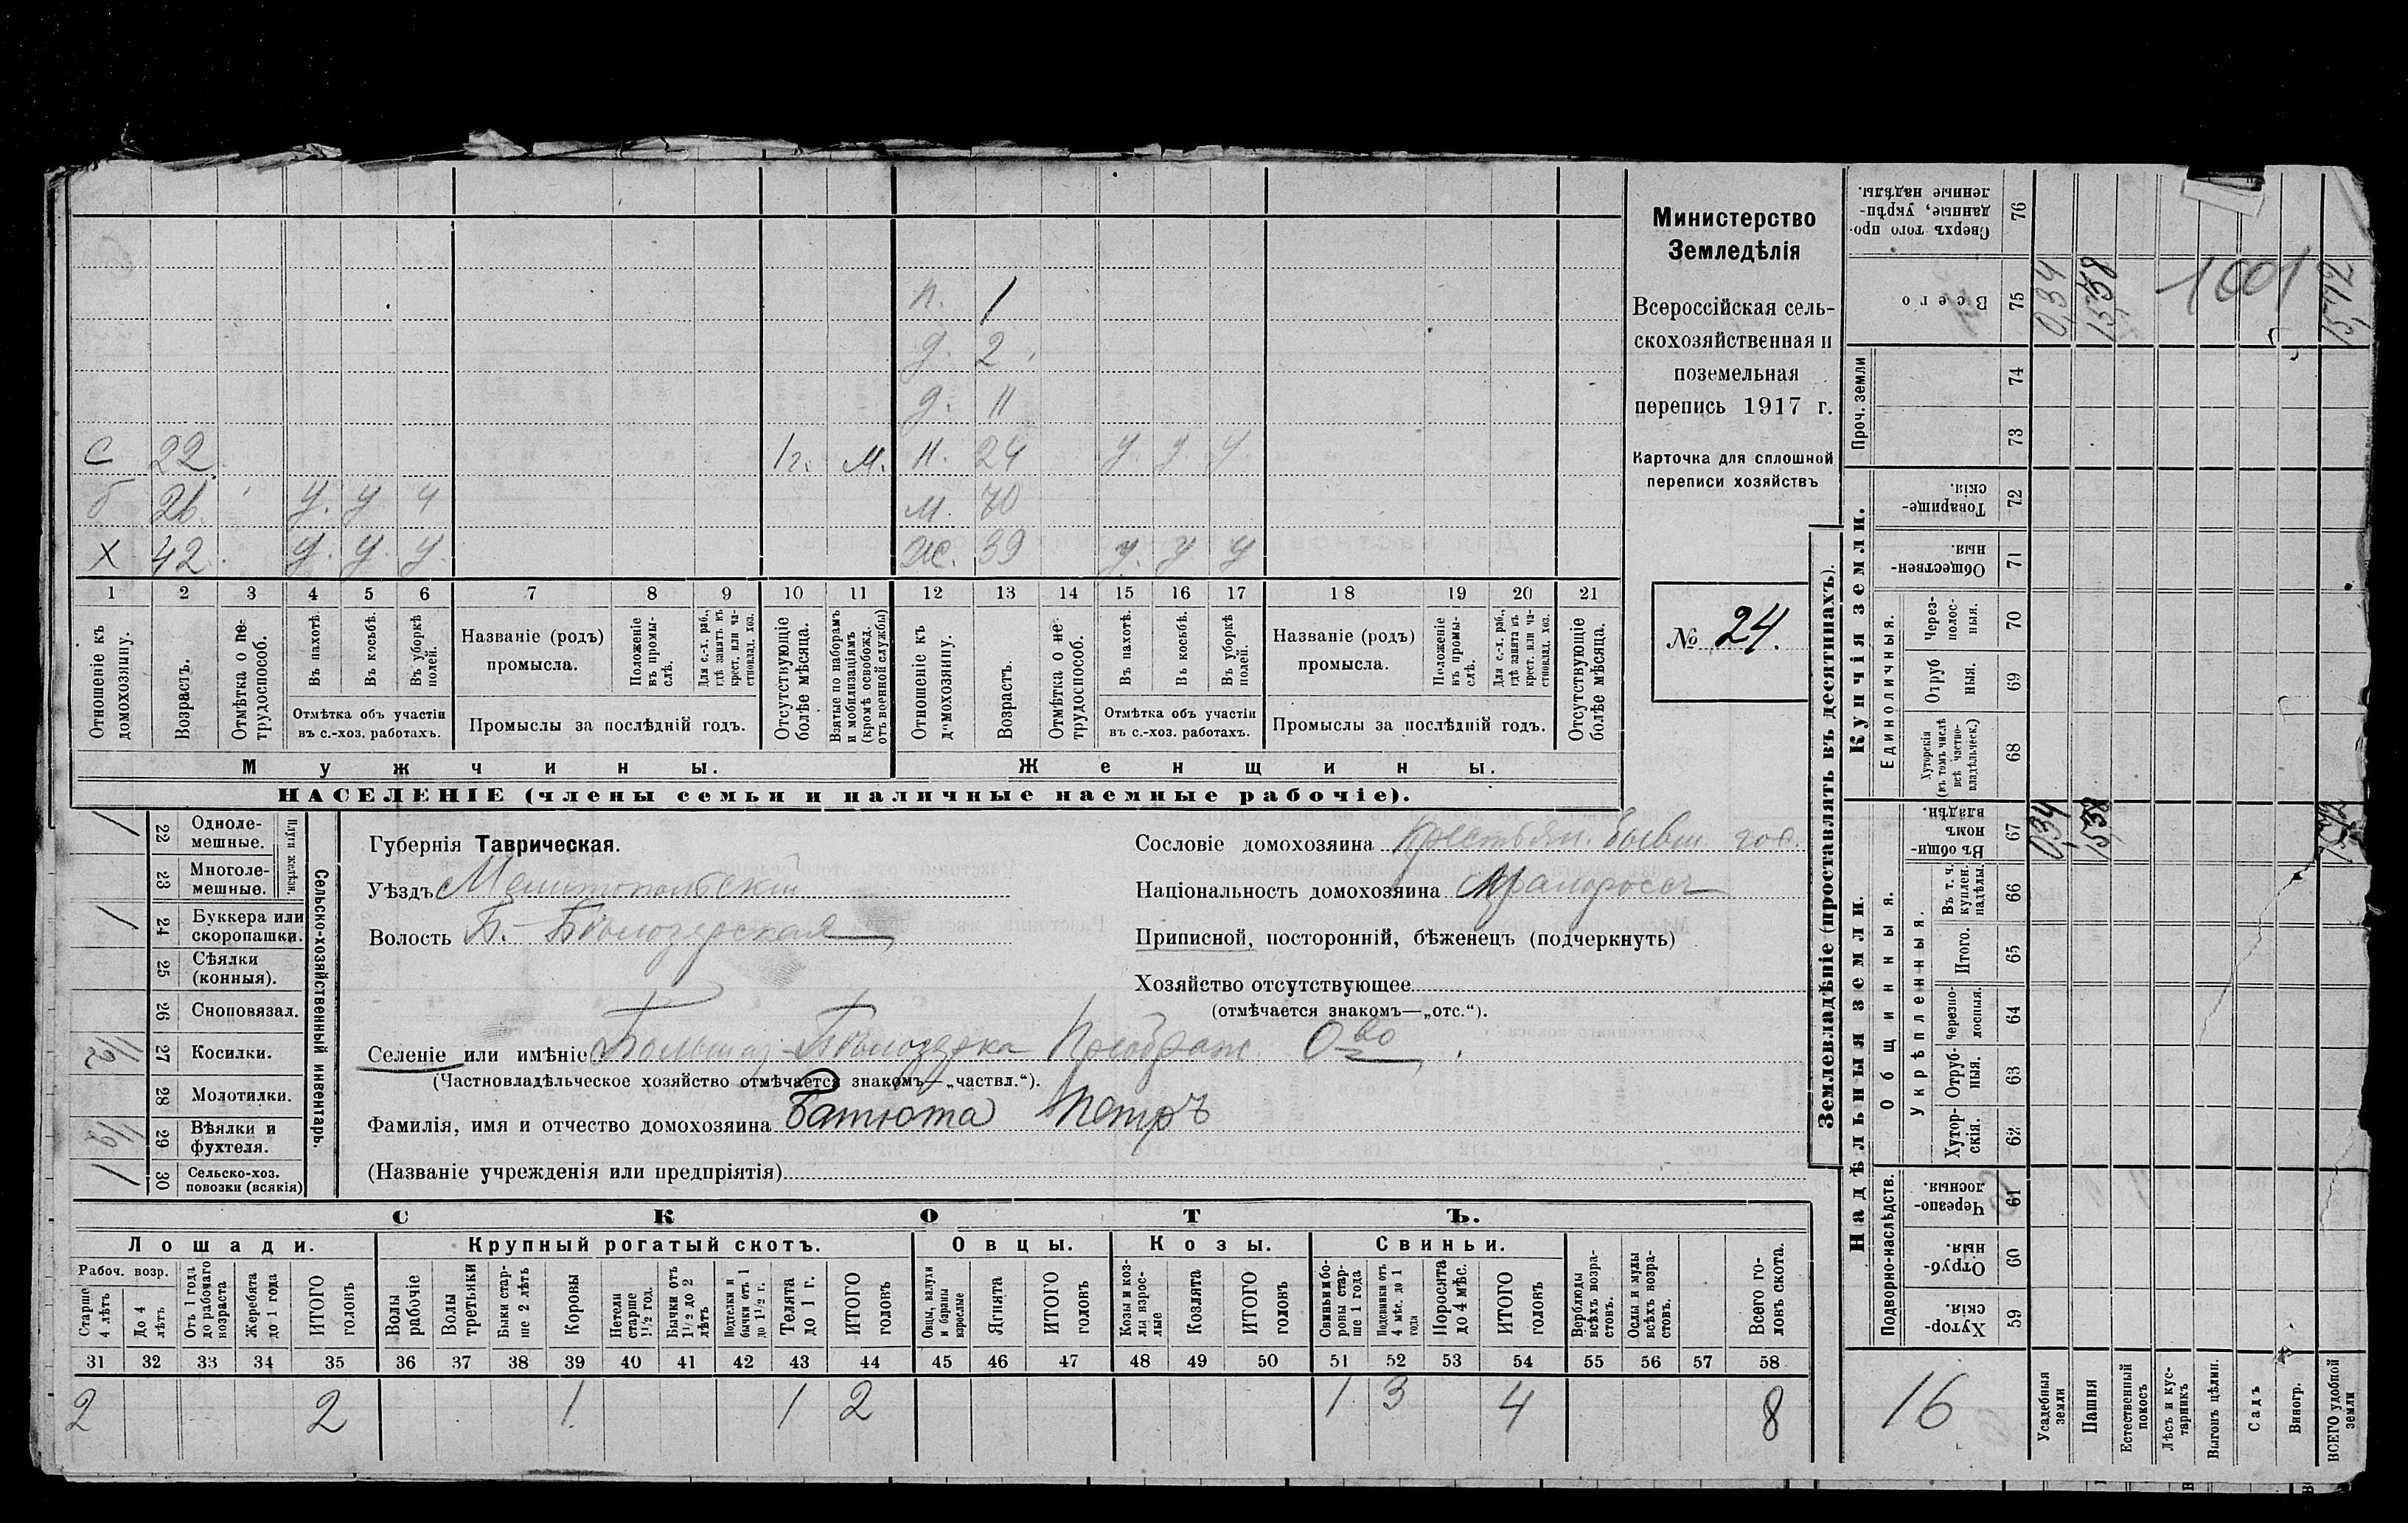 п. 1
д. 2
д. 11
С 22 1 г. м. н. 24 у. у. у
б 26. у. у ч м. 70
Х 42 у. у. у. ж. 39 у. у. у
1 2 3 4 5 6 7 8 9 10 11 12 13 14 15 16 17 18 19 20 21
Отношеніе къ домохозяину.
Возрастъ.
Отмѣтка о нетрудоспособ.
Въ пахотѣ.
Въ косьбѣ.
Въ уборкѣ полей.
Отмѣтка объ участіи въ с.-хоз. работахъ.
Названіе (родъ) промысла.
Положеніе въ промыслѣ.
Для с.-х. раб., гдѣ занятъ въ крест. или частновлад. хоз.
Промыслы за послѣдній годъ.
Отсутствующіе болѣе мѣсяца.
Взятые по наборамъ и мобилизаціямъ (кромѣ освобожд. отъ военной службы)
Отношеніе къ домохозяину.
Возрастъ.
Отмѣтка о нетрудоспособ.
Въ пахотѣ.
Въ косьбѣ.
Въ уборкѣ полей.
Отмѣтка объ участіи въ с.-хоз. работахъ.
Названіе (родъ) промысла.
Положеніе въ промыслѣ.
Для с.-х. раб., гдѣ занята въ крест. или частновлад. хоз.
Промыслы за послѣдній годъ.
Отсутствующіе болѣе мѣсяца.
Мужчины. Женщины.
НАСЕЛЕНІЕ (члены семьи и наличные наемные рабочіе).
Министерство
Земледѣлія
Всероссійская сель-
скохозяйственная и
поземельная
перепись 1917 г.
Карточка для сплошной
переписи хозяйствъ
№ 24.
1 22 Однолемешные.
23 Многолемешные.
Плуги желѣзн.
1 24 Буккера или скоропашки.
25 Сѣялки (конныя).
26 Сноповязал.
1/2 27 Косилки.
28 Молотилки.
1/2 29 Вѣялки и фухтеля.
1 30 Сельско-хоз. повозки (всякія)
Сельско-хозяйственный инвентарь.
Губернія Таврическая.
Уѣздъ Мелитопольскій
Волость Б.-Бѣлозерская
Сословіе домохозяина Крестьян. бывш. гос.
Національность домохозяина Малороссъ
Приписной, посторонній, бѣженецъ (подчеркнуть)
Хозяйство отсутствующее
(отмѣчается знакомъ—„отс.“).
Селеніе или имѣніе Большая-Бѣлозерка Преображ О-во
(Частновладѣльческое хозяйство отмѣчается знакомъ—„частвл.“).
Фамилія, имя и отчество домохозяина Батюта Петръ
(Названіе учрежденія или предпріятія)
СКОТЪ.
Лошади. Крупный рогатый скотъ. Овцы. Козы. Свиньи.
Рабоч. возр.
Старше 4 лѣтъ
До 4 лѣтъ
Отъ 1 года до рабочаго возраста
Жеребята до 1 года
ИТОГО головъ
Волы рабочіе
Волы третьяки
Быки старше 2 лѣтъ
Коровы
Нетели старше 1 1/2 год.
Бычки отъ 1 1/2 до 2 лѣтъ
Подтелки и бычки отъ 1 до 1 1/2 г.
Телята до 1 г.
ИТОГО головъ
Овцы, валухи и бараны взрослые
Ягнята
ИТОГО головъ
Козы и козлы взрослые
Козлята
ИТОГО головъ
Свиньи и боровы старше 1 года
Подсвинки отъ 4 мѣс. до 1 года
Поросята до 4 мѣс.
ИТОГО головъ
Верблюды всѣхъ возрастовъ.
Ослы и мулы всѣхъ возрастовъ.
Всего головъ скота.
31 32 33 34 35 36 37 38 39 40 41 42 43 44 45 46 47 48 49 50 51 52 53 54 55 56 57 58
2 2 1 1 2 1 3 4 8
Землевладѣніе (проставлять въ десятинахъ).
Сверхъ того проданные, укрѣпленные надѣлы. 76
Всего 75 0,34 15,38 1001 15,72
Проч. земли 74
73
Купчія земли.
Товарищескія. 72
Общественныя 71
Единоличныя.
Черезполосныя. 70
Отрубныя. 69
Хуторскія (въ томъ числѣ всѣ частновладѣльческ.) 68
Надѣльныя земли.
Общинныя.
Въ общинномъ владѣн. 67 0,34 15,38 15,72
Укрѣпленныя.
Въ т. ч. куплен. надѣлы. 66
Итого. 65
Черезполосныя. 64
Отрубныя. 63
Хуторскія. 62
Подворно-наслѣдств.
Черезполосныя. 61
Отрубныя. 60
Хуторскія. 59
16
Усадебныя земли
Пашня
Естественный покосъ
Лѣсъ и кустарникъ
Выгонъ цѣлин.
Садъ
Виногр.
ВСЕГО удобной земли